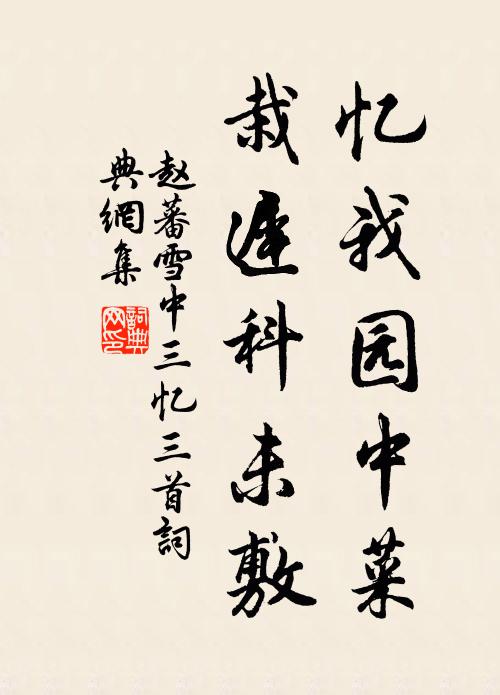 忆我园中菜
栽遲科未敷
赵蕃雪中三忆三首詞
典網集
詞典
网印